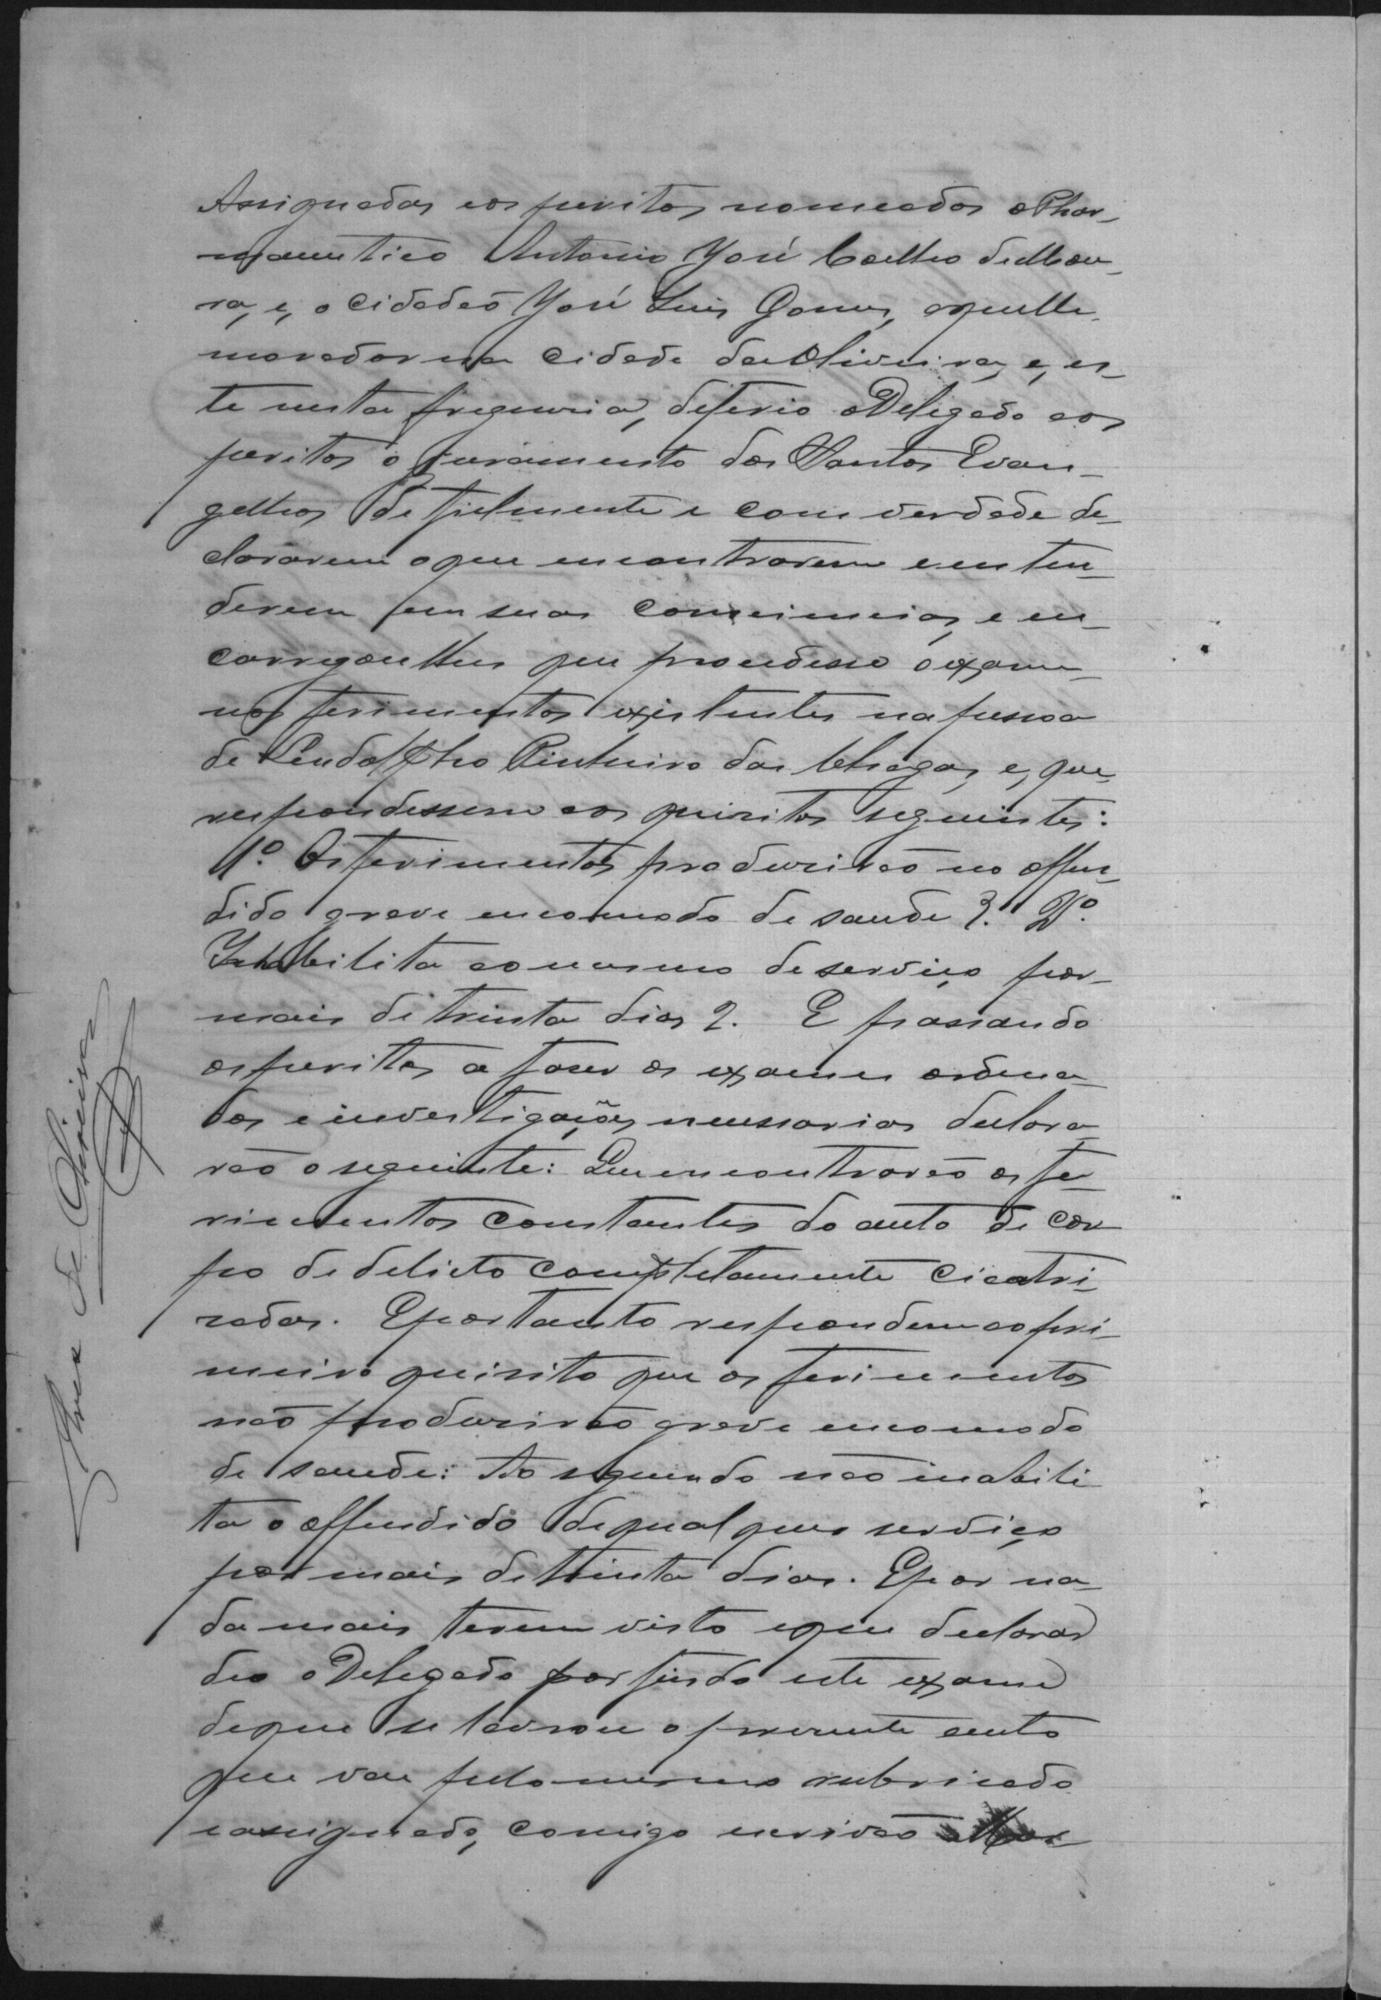 Assignadas e os peritos nomeados o Phar-
maceutico Antonio José Coelho de Mou-
ra, e, o cidadão José Luis Gomes, aquelle
morador na cidade da Oliveira, e, es-
te nesta freguesia, deferio o Delegado aos
peritos o juramento dos Santos Evan-
gelhos de fielmente e com verdade de-
clararem o que encontrarem e enten-
derem em suas consciencias, e en-
carregou lhes que procedesse o exame
nos ferimentos existentes na pessoa
de Lindolpho Pinheiro das Chagas, e, que
respondessem aos quisitos seguintes:
1º. Os ferimentos produzirão no offen-
dido grave encomodo de saude?. 2º.
Inhabilita ao mesmo de serviço por
mais de trinta dias?. E passando
os peritos a faser os exames ordena-
dos e investigações necessarias declara-
rão o seguinte: Que encontrarão os fe-
rimentos constantes do auto de cor
po de delicto completamente cicatri-
zados. E portanto respondem ao pri-
meiro quisito que os ferimentos
não produzirão grave encomodo
de saude: Ao segundo não inabili
ta o offendido de qualquer serviço
por mais de trinta dias. E por na-
da mais terem visto e que declarar
deu o Delegado por findo este exame
de que se lavrou o presente auto
que vae pelo mesmo rubricado
e assignado, comigo escrivão
de Oliveira